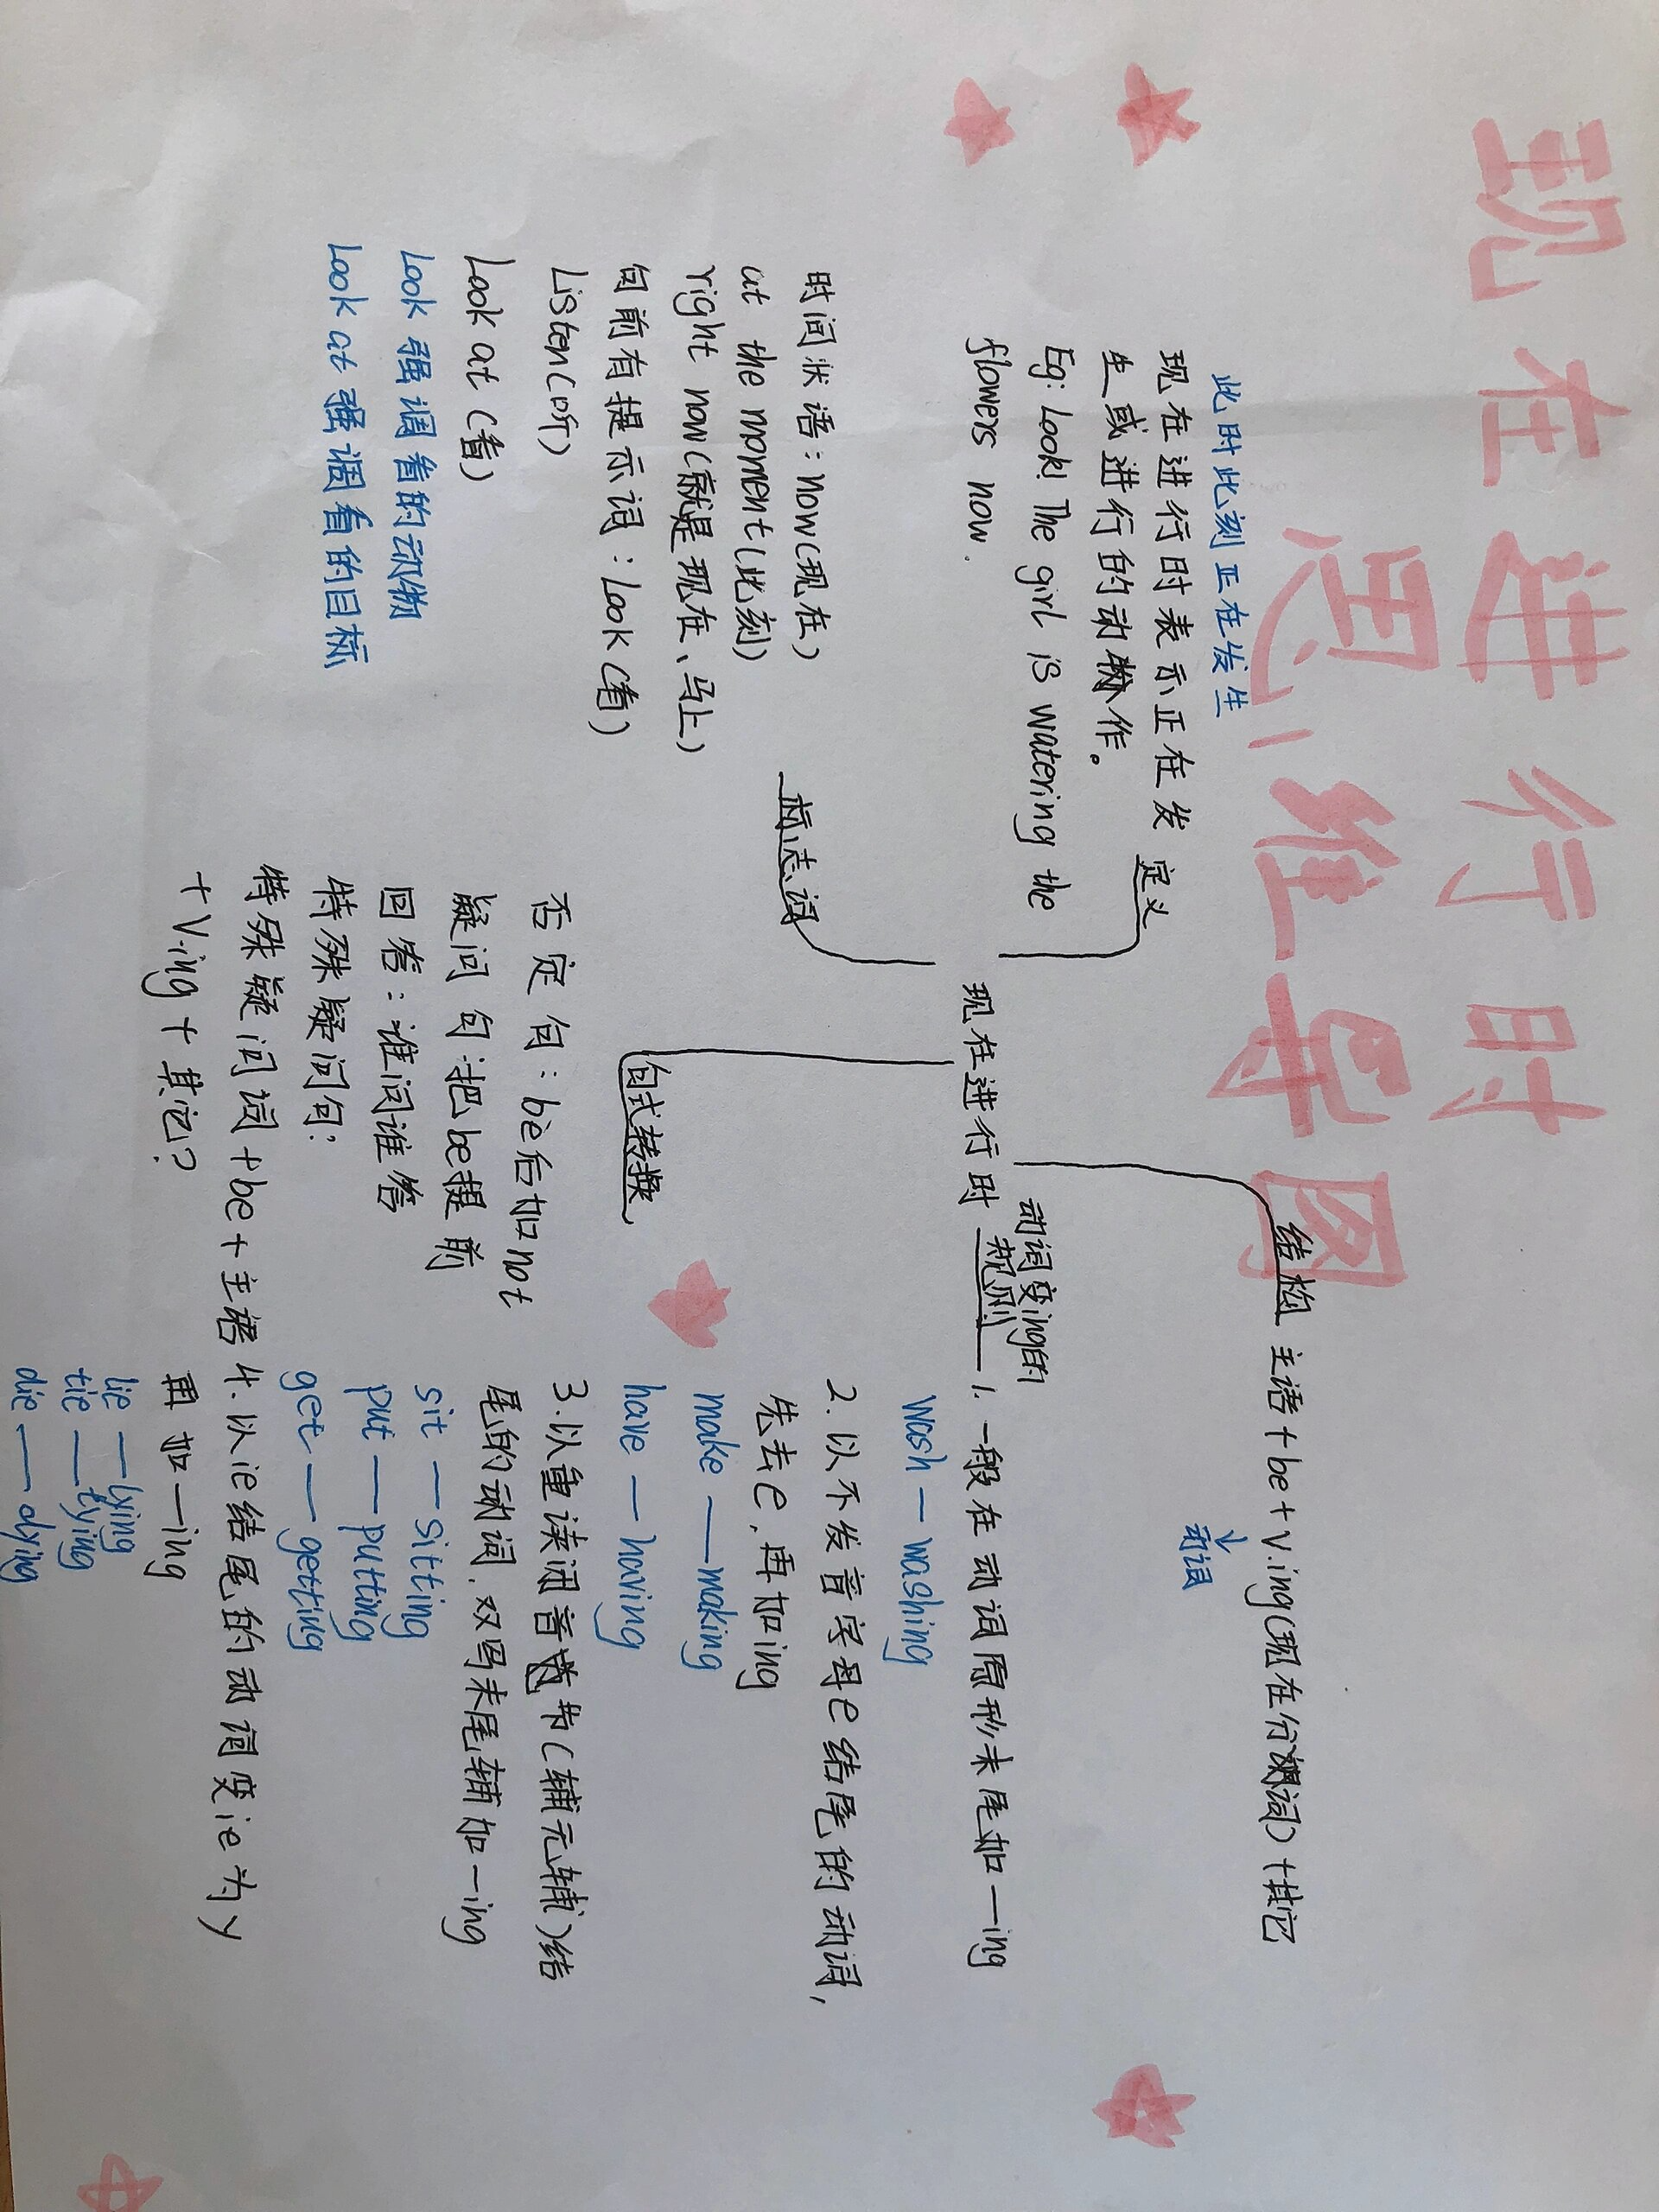 现在进行时
思维导图
此时此刻正在发生
现在进行时表示正在发
生或进行的动作。
Eg: Look! The girl is watering the
flowers now.
定义
时间状语:now(现在)
at the moment(此刻)
right now(就是现在、马上)
句前有提示词:Look(看)
Listen(听)
Look at(看)
Look强调看的动物
Look at强调看的目标
标志词
现在进行时
结构
主语+be+v.ing(现在分词)+其它
动词
动词变ing的
规则
1.一般在动词原形末尾加-ing
wash-washing
2.以不发音字母e结尾的动词,
先去e,再加ing
make-making
have-having
3.以重读闭音节(辅元辅)结
尾的动词,双写末尾辅加-ing
sit-sitting
put-putting
get-getting
4.以ie结尾的动词变ie为y
再加-ing
lie-lying
tie-tying
die-dying
句式转换
否定句:be后加not
疑问句:把be提前
回答:谁问谁答
特殊疑问句:
特殊疑问词+be+主语
+V.ing+其它?